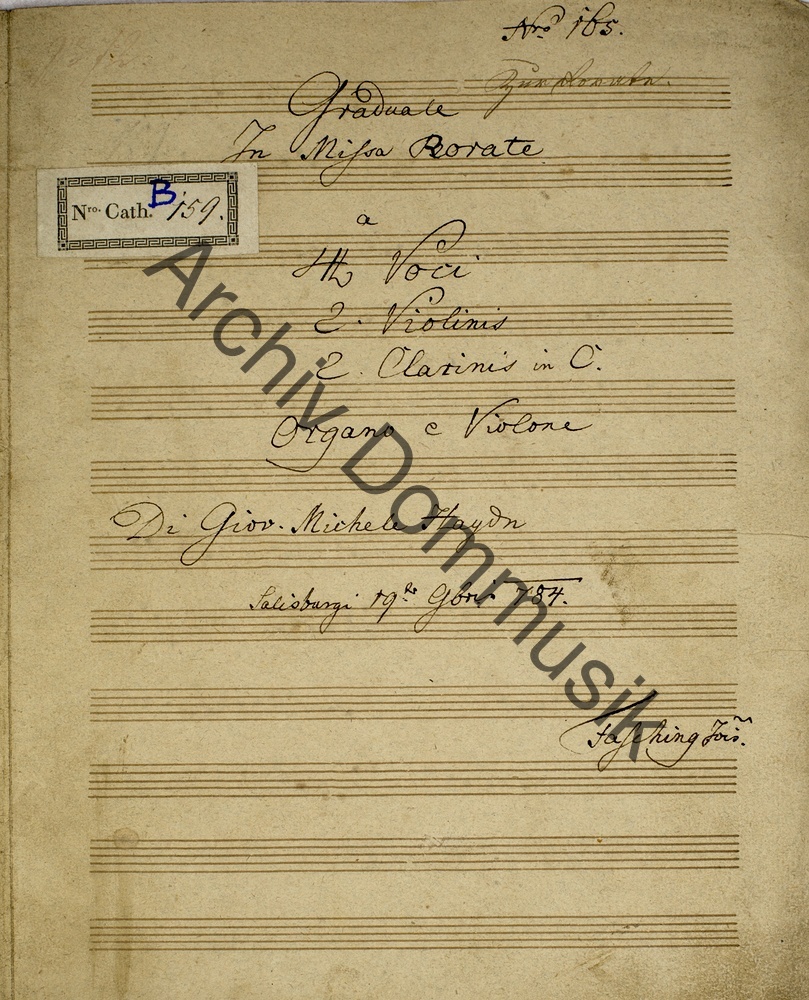 Nrо̲ 165.
Zur Rorate.
Graduale
In Missa Rorate
Nro. Cath. B 159.
a
4 Voci
2. Violinis
2. Clarinis in C.
Organo e Violone
Di Giov. Michele Haydn
Salisburgi 19 9bris 784.
Fasching Jois.
Archiv Dommusik